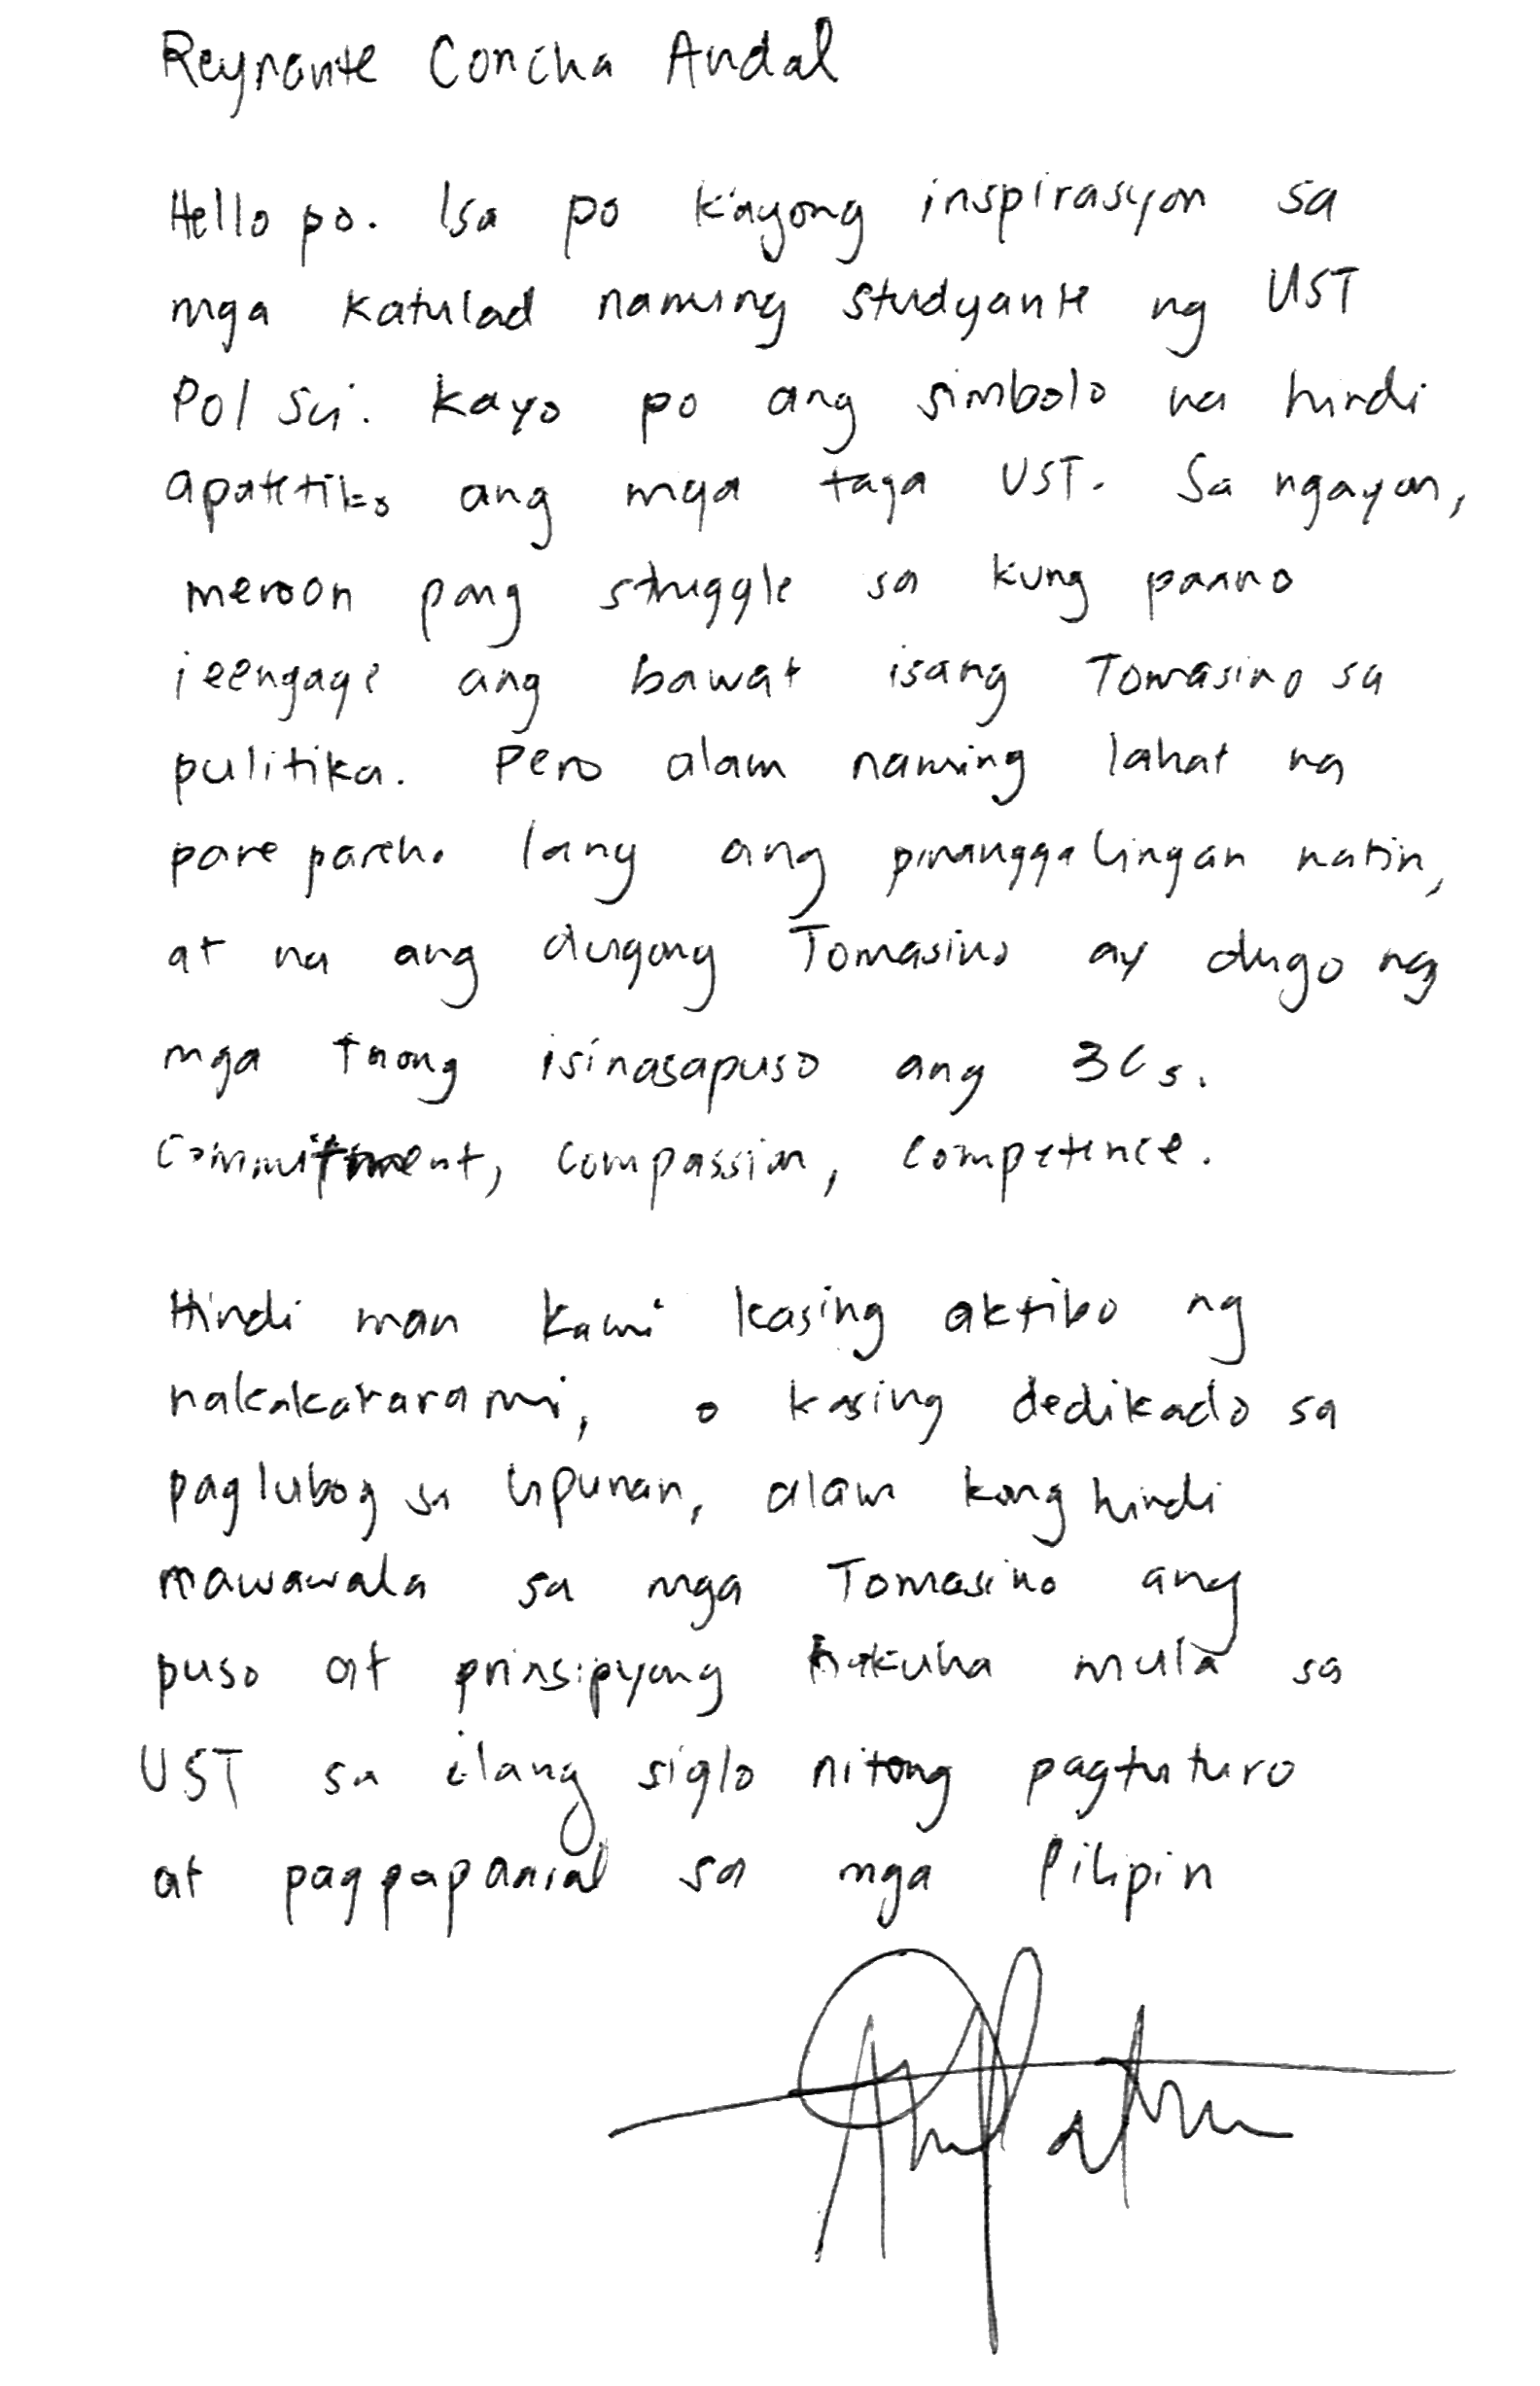 Reynante Concha Andal
Hello po. Isa po kayong inspirasyon sa
mga katulad naming studyante ng UST
Pol Sci. Kayo po ang simbolo na hindi
apatetiko ang mga taga UST. Sa ngayon,
meroon pang struggle sa kung paano
ieengage ang bawat isang Tomasino sa
pulitika. Pero alam naming lahat na
pare pareho lang ang pinanggalingan natin,
at na ang dugong Tomasino ay dugo ng
mga taong isinasapuso ang 3Cs.
Commitment, compassion, competence.
Hindi man kami kasing aktibo ng
nakakararami, o kasing dedikado sa
paglubog sa lipunan, alam kong hindi
mawawala sa mga Tomasino ang
puso at prinsipyong nakuha mula sa
UST sa ilang siglo nitong pagtuturo
at pagpapaaral sa mga Pilipin